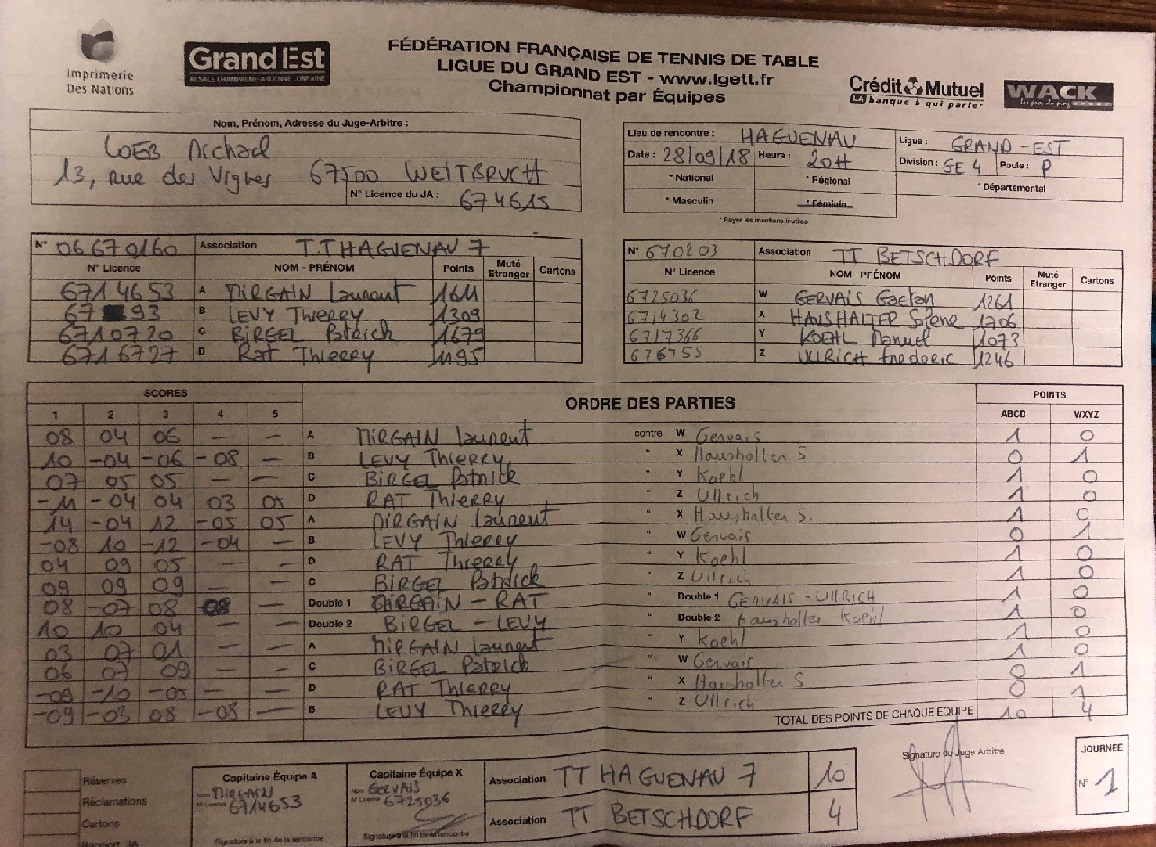 Imprimerie
Des Nations
Grand Est
ALSACE CHAMPAGNE-ARDENNE LORRAINE
FÉDÉRATION FRANÇAISE DE TENNIS DE TABLE
LIGUE DU GRAND EST - www.lgett.fr
Championnat par Équipes
Crédit Mutuel
LA banque à qui parler
WACK
Nom, Prénom, Adresse du Juge-Arbitre :
LOEB Michael
13, rue des Vignes 67500 WEITBRUCH
N° Licence du JA : 674615
Lieu de rencontre : HAGUENAU
Date : 28/09/18 Heure : 20H
* National * Régional * Départemental
* Masculin * Féminin
* Rayer les mentions inutiles
Ligue : GRAND-EST
Division : GE 4 Poule : P
N° 06670160 Association T.T HAGUENAU 7
N° Licence NOM - PRÉNOM Points Muté Etranger Cartons
6714653 A MIRGAIN Laurent 1611
67 93 B LEVY Thierry 1309
6710720 C BIRGEL Patrick 1679
6716727 D Rat Thierry 1195
N° 670203 Association TT BETSCHDORF
N° Licence NOM PRÉNOM Points Muté Etranger Cartons
6725036 W GERVAIS Gaetan 1261
6714302 X HAUSHALTER 1706
6717366 Y KOEHL Manuel 1073
676755 Z ULLRICH frederic 1246
SCORES ORDRE DES PARTIES POINTS
1 2 3 4 5 ABCD WXYZ
08 04 06 — — A MIRGAIN Laurent contre W Gervais 1 0
10 -04 -06 -08 — B LEVY Thierry " X Haushalter S 0 1
07 05 05 — — C BIRGEL Patrick " Y Koehl 1 0
-11 -04 04 03 05 D RAT Thierry " Z Ullrich 1 0
14 -04 12 -05 05 A MIRGAIN Laurent " X Haushalter S. 1 0
-08 10 -12 -04 — B LEVY Thierry " W Gervais 0 1
04 09 05 — — D RAT Thierry " Y Koehl 1 0
09 09 09 — — C BIRGEL Patrick " Z Ullrich 1 0
08 -07 08 08 — Double 1 MIRGAIN - RAT " Double 1 GERVAIS - ULLRICH 1 0
10 10 04 — — Double 2 BIRGEL - LEVY " Double 2 Haushalter Koehl 1 0
03 07 01 — — A MIRGAIN Laurent " Y Koehl 1 0
06 07 09 — — C BIRGEL Patrick " W Gervais 1 0
-09 -10 -05 — — D RAT Thierry " X Haushalter S 0 1
-09 -03 08 -08 — B LEVY Thierry " Z Ullrich 0 1
TOTAL DES POINTS DE CHAQUE EQUIPE 10 4
Réserves
Réclamations
Cartons
Rapport JA
Capitaine Équipe A
MIRGAIN
N° Licence 6714653
Signature à la fin de la rencontre
Capitaine Équipe X
Nom GERVAIS
N° Licence 6725036
Signature à la fin de la rencontre
Association TT HAGUENAU 7 10
Association TT BETSCHDORF 4
Signature du Juge Arbitre
JOURNEE
N° 1